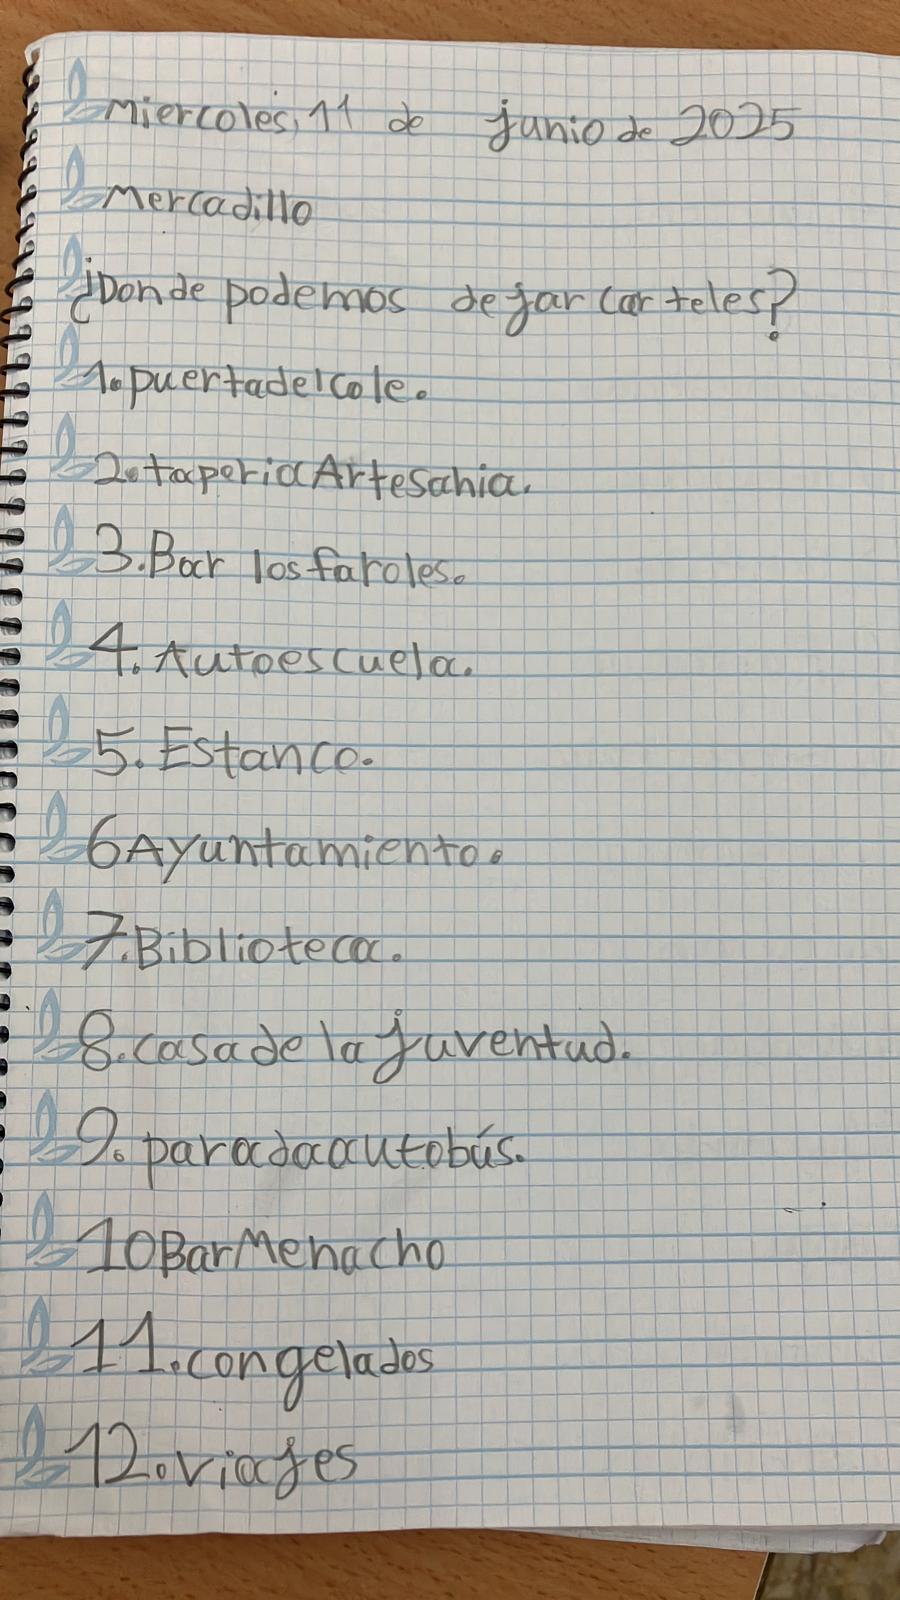 Miercoles, 11 de junio de 2025
Mercadillo
¿Donde podemos dejar carteles?
1. puerta del cole.
2. taperia Artesania.
3. Bar los faroles.
4. Autoescuela.
5. Estanco.
6 Ayuntamiento.
7. Biblioteca.
8. casa de la juventud.
9. parada autobús.
10 Bar Menacho
11. congelados
12. viajes